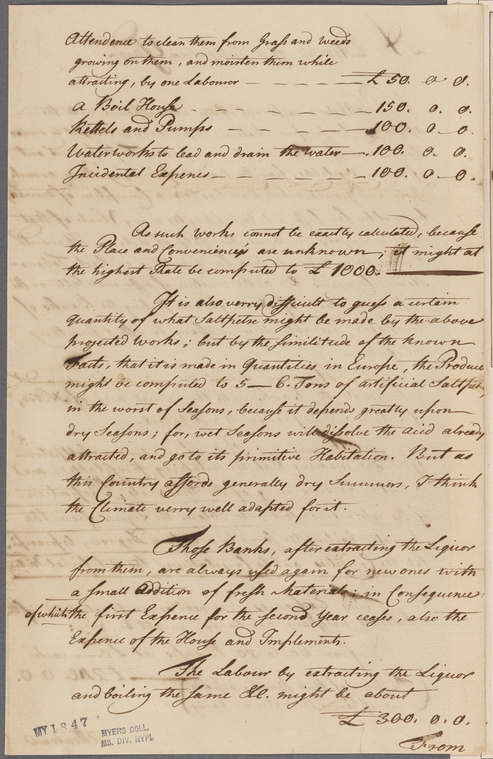 Attendence to clean them from Grass and weeds
growing on them, and moisten them while
attracting, by one Labourer — — — — £ 50. 0 0.
A Boil House — — — — 150. 0. 0.
Kettels and Pumps — — — — 100. 0. 0.
Waterworks to lead and drain the water — . 100. 0. 0.
Incidental Expences — — — — . 100. 0. 0.
As such works cannot be exactly calculated, because
the Place and Conveniencys are unknown, it might at
the highest State be computed to £ 1000.
It is also verry difficult to guess a certain
quantity of what Saltpetre might be made by the above
projected Works; but by the similitude of the known
Facts, that it is made in Quantities in Europe, the Produce
might be computed to 5 — 6. Tons of artificial Saltpet,
in the worst of Seasons, because it depends greatly upon
dry Seasons; for, wet Seasons will dissolve the acid already
attracted, and go to its primitive Habitation. But as
this Country affords generally dry Summers, I think
the Climate verry well adapted for it.
Those Banks, after extracting the Liquor
from them, are always used again for new ones with
a small addition of fresh Materials; in Consequence
of which the first Expence for the second Year ceases, also the
Expence of the House and Implements.
The Labour by extracting the Liquor
and boiling the same &C. might be about
£ 300. 0. 0.
From
MY 1847
MYERS COLL.
MS. DIV. NYPL